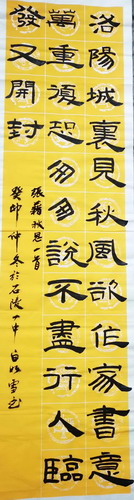 洛陽城裏見秋風欲作家書意
萬重復恐匆匆說不盡行人臨
發又開封
張籍秋思一首
癸卯仲冬於石陵一中白雪